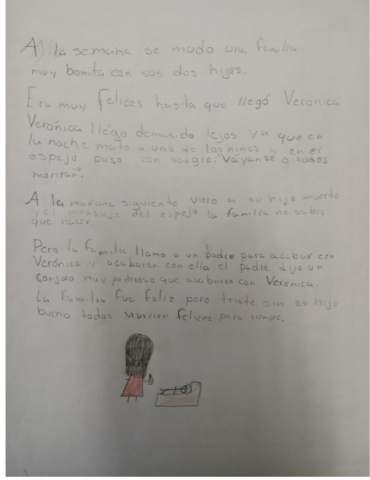 A la semana se mudo una familia
muy bonita con sus dos hijos.
Era muy felices hasta que llegó Verónica
Verónica llego demasido lejos ya que en
la noche mato a uno de los niños y en el
espejo puso con sangre: Váyanse o todos
moriran".
A la mañana siguiente viero a su hijo muerto
y el mensaje del espejo la familia no sabia
que hacer.
Pero la familia llamo a un padre para acabar con
Verónica y acabaron con ella el padre dijo un
conjuro muy poderoso que acabaron con Veronica.
La familia fue feliz pero triste sin su hijo
bueno todos vivieron felices para siempre.